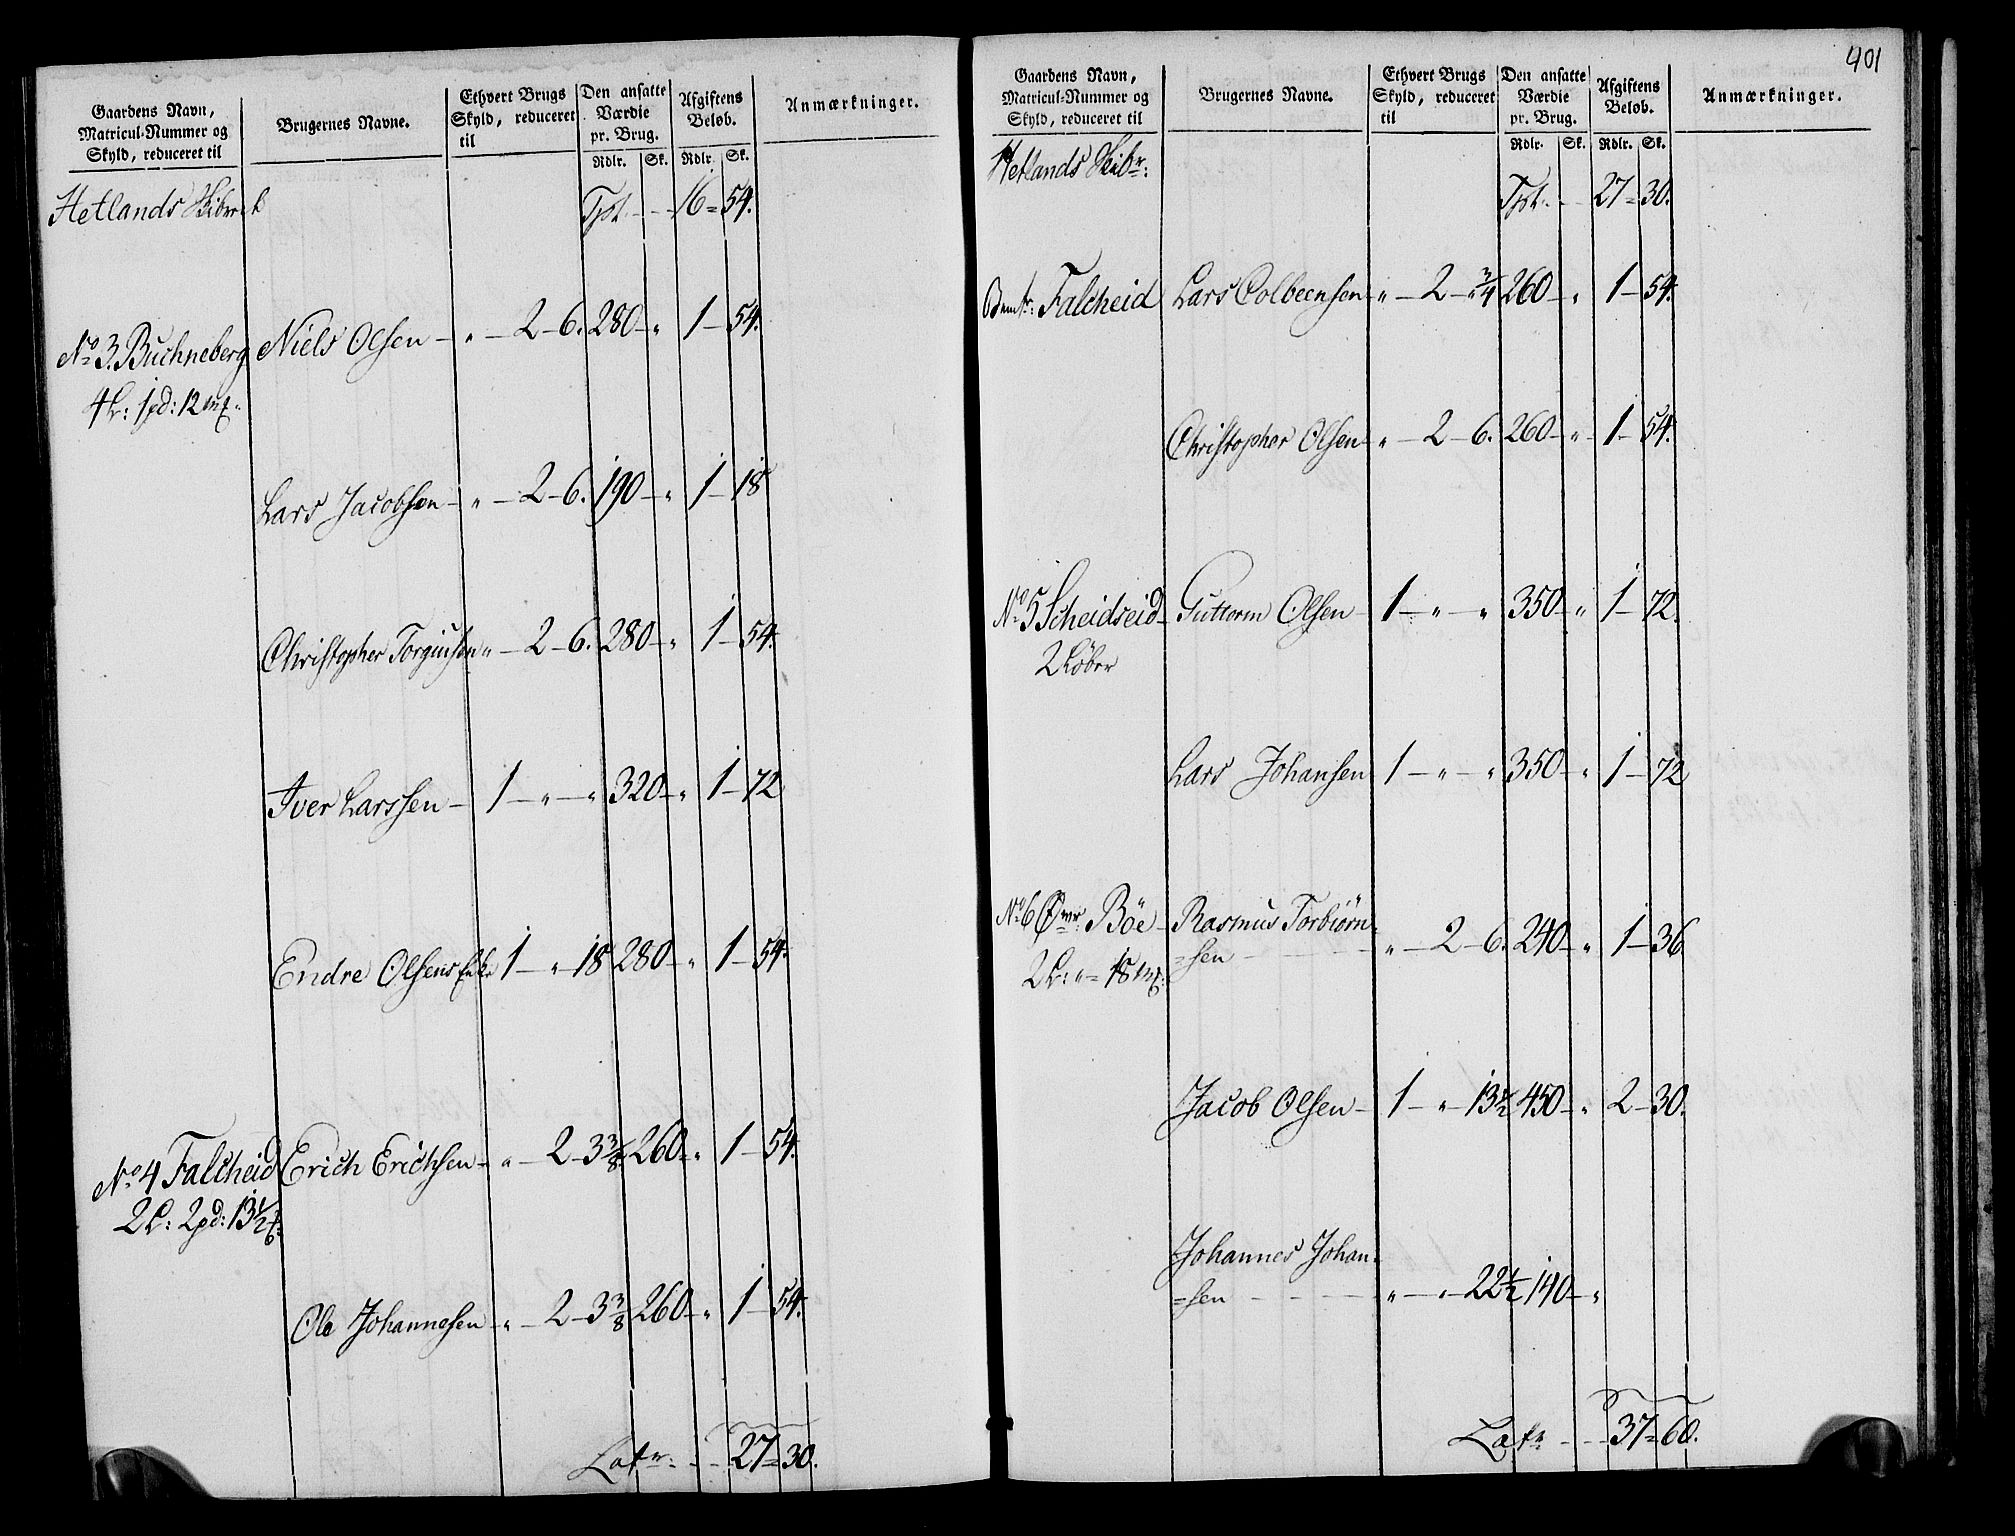 Gaardens Navn,
Matricul-Nummer og
Skyld, reduceret til
Brugernes Navne.
Ethvert Brugs
Skyld, reduceret
til
Den ansatte
Værdie
pr. Brug.
Rdlr. Sk.
Afgiftens
Beløb.
Rdlr. Sk.
Anmærkninger.
Hetlands Skibr.
Tpt. - - 16 = 54.
No 3. Buchneberg Niels Olsen - " - 2 - 6. 280 - " 1 - 54.
4 L: 1 pd: 12 mk.
Lars Jacobsen - " - 2 - 6. 190 - " 1 - 18
Christopher Torgiusen " - 2 - 6. 280 - " 1 - 54.
Iver Larssen - 1 - " - " 320 - " 1 - 72
Endre Olsens Enke 1 - " - 18 280 - " 1 - 54.
No 4 Falcheid Erich Erichsen - " - 2 - 3 3/8 260 - " 1 - 54.
2 L: 2 pd: 13 1/2
Ole Johannesen - " - 2 - 3 3/8 260 - " 1 - 54.
Latr: - - 27 = 30.
401
Gaardens Navn,
Matricul-Nummer og
Skyld, reduceret til
Brugernes Navne.
Ethvert Brugs
Skyld, reduceret
til
Den ansatte
Værdie
pr. Brug.
Rdlr. Sk.
Afgiftens
Beløb.
Rdlr. Sk.
Anmærkninger.
Hetlands Skibr:
Tpt. - - 27 = 30.
Bemt: Falcheid Lars Colbeensen - " - 2 - " 3/4 260 - " 1 - 54.
Christopher Olsen - " - 2 - 6. 260 - " - 1 - 54.
No 5 Scheidseid - Guttorm Olsen - 1 - " - " 350 - " 1 - 72.
2 Løber
Lars Johansen 1 - " - " 350 - " 1 - 72
No 6 Øvr Böe - Rasmus Torbiørn=
=sen - - - " - 2 - 6. 240 - " 1 - 36
2 L: " = 18 mk:
Jacob Olsen - 1 - " - 13 1/2 450 - " 2 - 30.
Johannes Johan=
=sen - - - " - " - 22 1/2 140 - "
Latr - - 37 = 60.